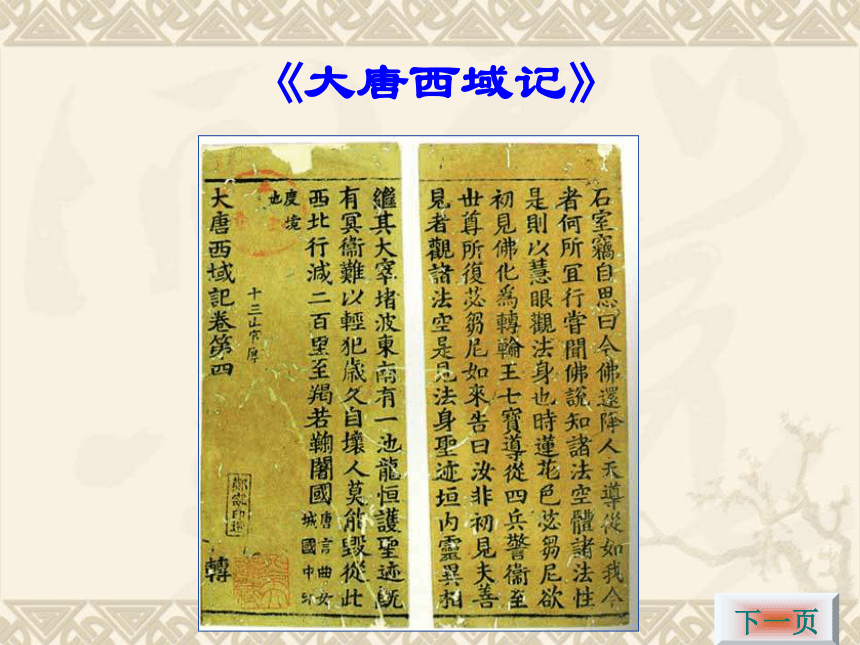 《大唐西域记》
石室竊自思曰今佛還降人天導從如我今
者何所宜行嘗聞佛說知諸法空體諸法性
是則以慧眼觀法身也時蓮花色苾芻尼欲
初見佛化為轉輪王七寶導從四兵警衞至
世尊所復苾芻尼如來告曰汝非初見夫善
見者觀諸法空是見法身聖迹垣內靈異相
繼其大窣堵波東南有一池龍恒護聖迹既
有冥衞難以輕犯歲久自壞人莫能毀從此
西北行減二百里至羯若鞠闍國唐言曲女城國中印
度境也
十三山
大唐西域記卷第四
轉
下一页